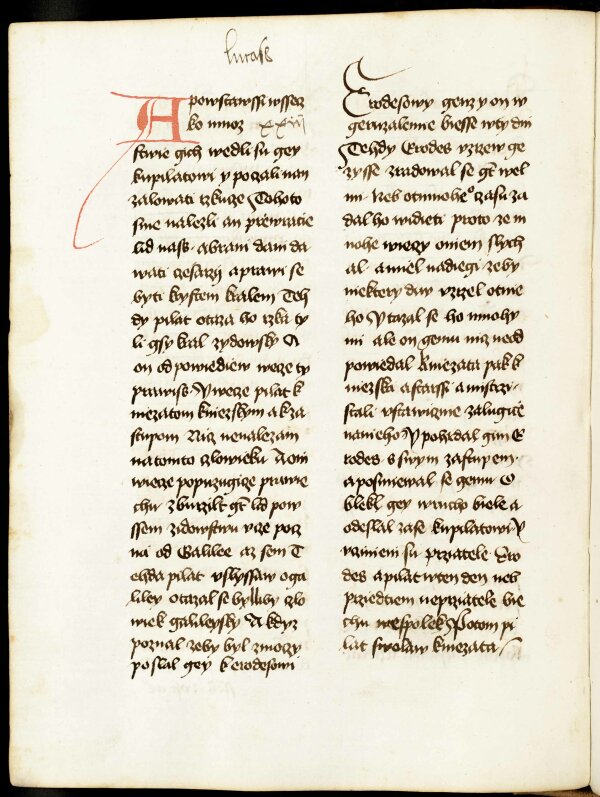 lucass
A powstawssi wssecz
ko mnoz xxiii
stwie gich wedli su gey
kupilatowi y poczali nan
zalowati rzkuze Tohoto
sme nalezli an przewracie
lid nass. a brani dani da
wati cesarzi a prawi se
byti krystem kralem Teh
dy pilat otaza ho rzka ty
li gsy kral zydowsky A
on odpowiediew wece ty
prawiss. Y wece pilat k
niezatom kniezskym a kza
stupom Nicz nenalezam
natomto czlowieku A oni
wiecze popuzugice prawie
chu zburzilt gt lid pow
ssem zidowstwu vcze pocz
na od Galilee az sem T
ehda pilat vslyssaw oga
liley otazal se byl liby czlo
wiek galileysky A kdyz
poznal zeby byl zmoczy
poslal gey k erodesowi
Erodesowy genz y on w
geruzalemie biesse wty dni
Tehdy Erodes vzrzew ge
zysse zradowal se gt wel
mi. Neb otmnohe° czasu za
dal ho widieti proto ze m
nohe wieczy oniem slych
al. a miel nadiegi zeby
niektery diw vzrzel otnie
ho Y tazal se ho mnohy
mi ale on gemu nicz neod
powiedal Kniezata pak k
niezska a starssi a mistrzi
stali vstawiczne zalugice
nanieho Y pohrdal gim E
rodes s swym zastupem.
a posmiewal se gemu O
blekl gey wrucho biele a
odeslal zase kupilatowi Y
vczinieni su przatele Ero
des a pilat wten den neb
przedtiem neprzatele bie
chu wespolek Potom pi
lat swolaw kniezata